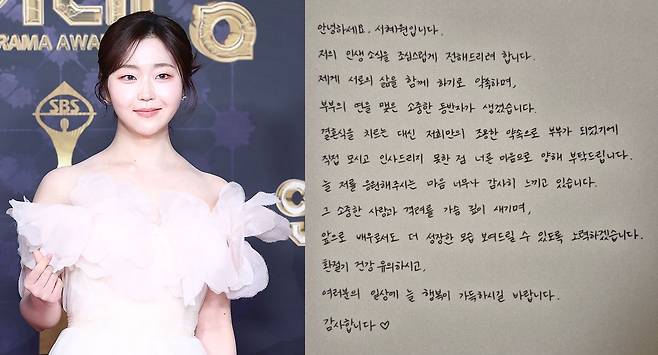 RAMA AWA
SBS
안녕하세요, 서혜원입니다.
저의 인생 소식을 조심스럽게 전해드리려 합니다.
제게 서로의 삶을 함께 하기로 약속하며,
부부의 연을 맺은 소중한 동반자가 생겼습니다.
결혼식을 치르는 대신 저희만의 조용한 약속으로 부부가 되었기에
직접 모시고 인사드리지 못한 점 너른 마음으로 양해 부탁드립니다.
늘 저를 응원해주시는 마음 너무나 감사히 느끼고 있습니다.
그 소중한 사랑과 격려를 가슴 깊이 새기며,
앞으로 배우로서도 더 성장한 모습 보여드릴 수 있도록 노력하겠습니다.
환절기 건강 유의하시고,
여러분의 일상에 늘 행복이 가득하시길 바랍니다.
감사합니다 ♡